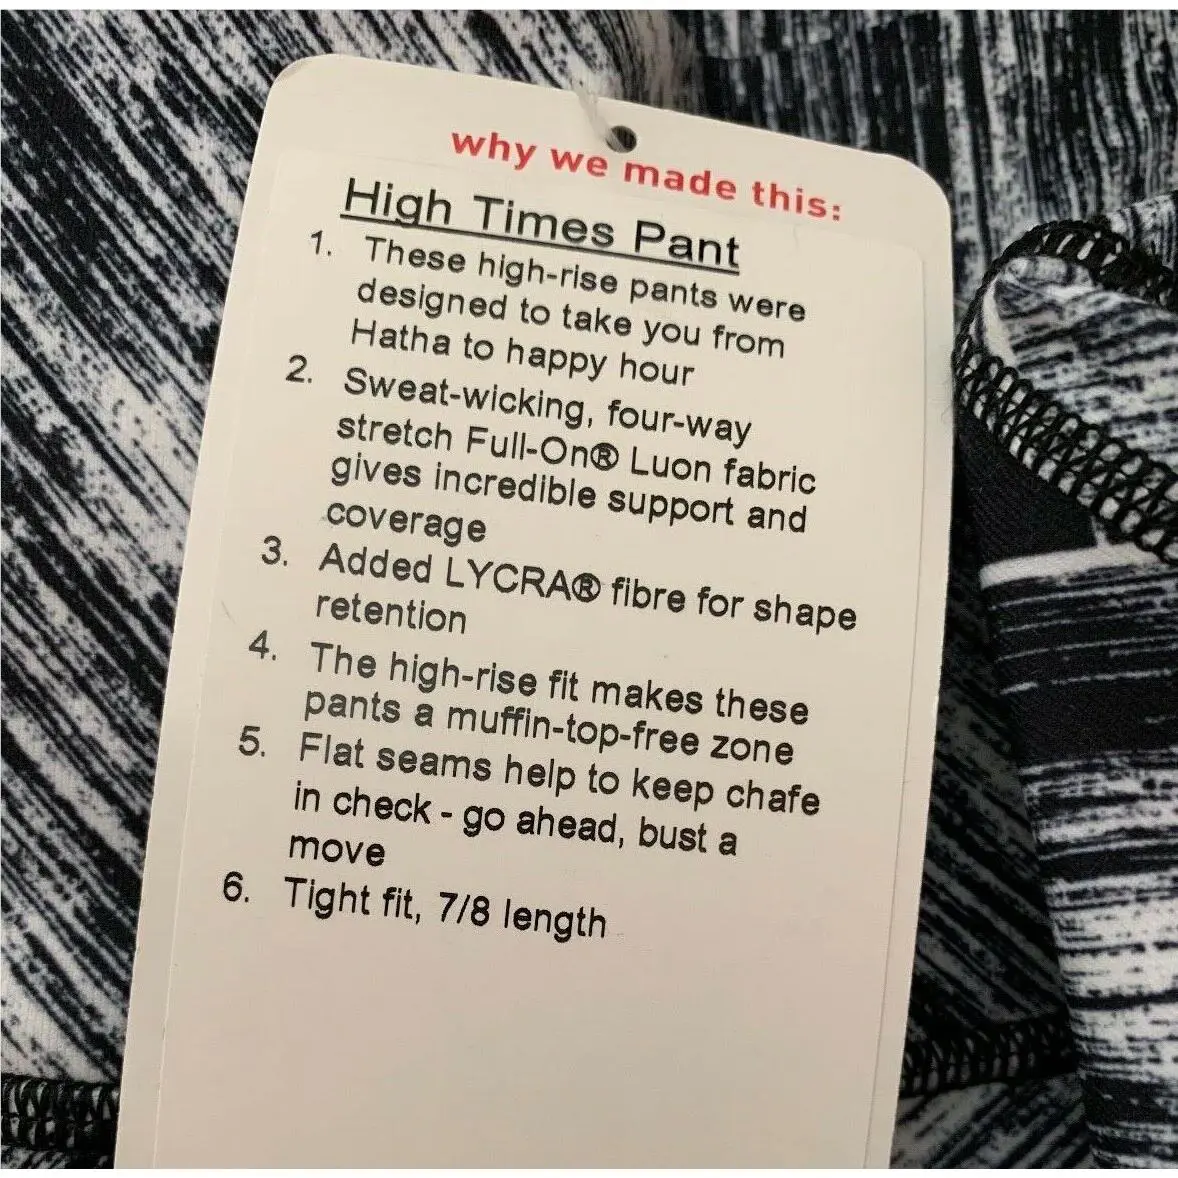 why we made this:
High Times Pant
1. These high-rise pants were
designed to take you from
Hatha to happy hour
2. Sweat-wicking, four-way
stretch Full-On® Luon fabric
gives incredible support and
coverage
3. Added LYCRA® fibre for shape
retention
4. The high-rise fit makes these
pants a muffin-top-free zone
5. Flat seams help to keep chafe
in check - go ahead, bust a
move
6. Tight fit, 7/8 length